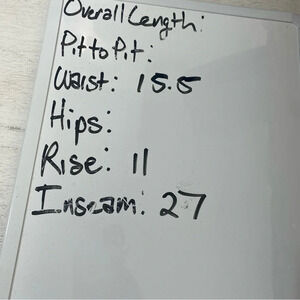 Overall Length:
Pit to Pit:
Waist: 15.5
Hips:
Rise: 11
Inseam: 27